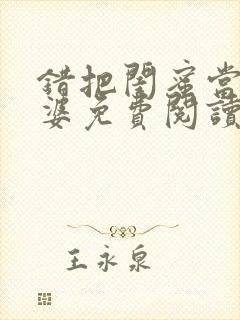 錯把閨蜜當
婆免費閱讀
王永泉